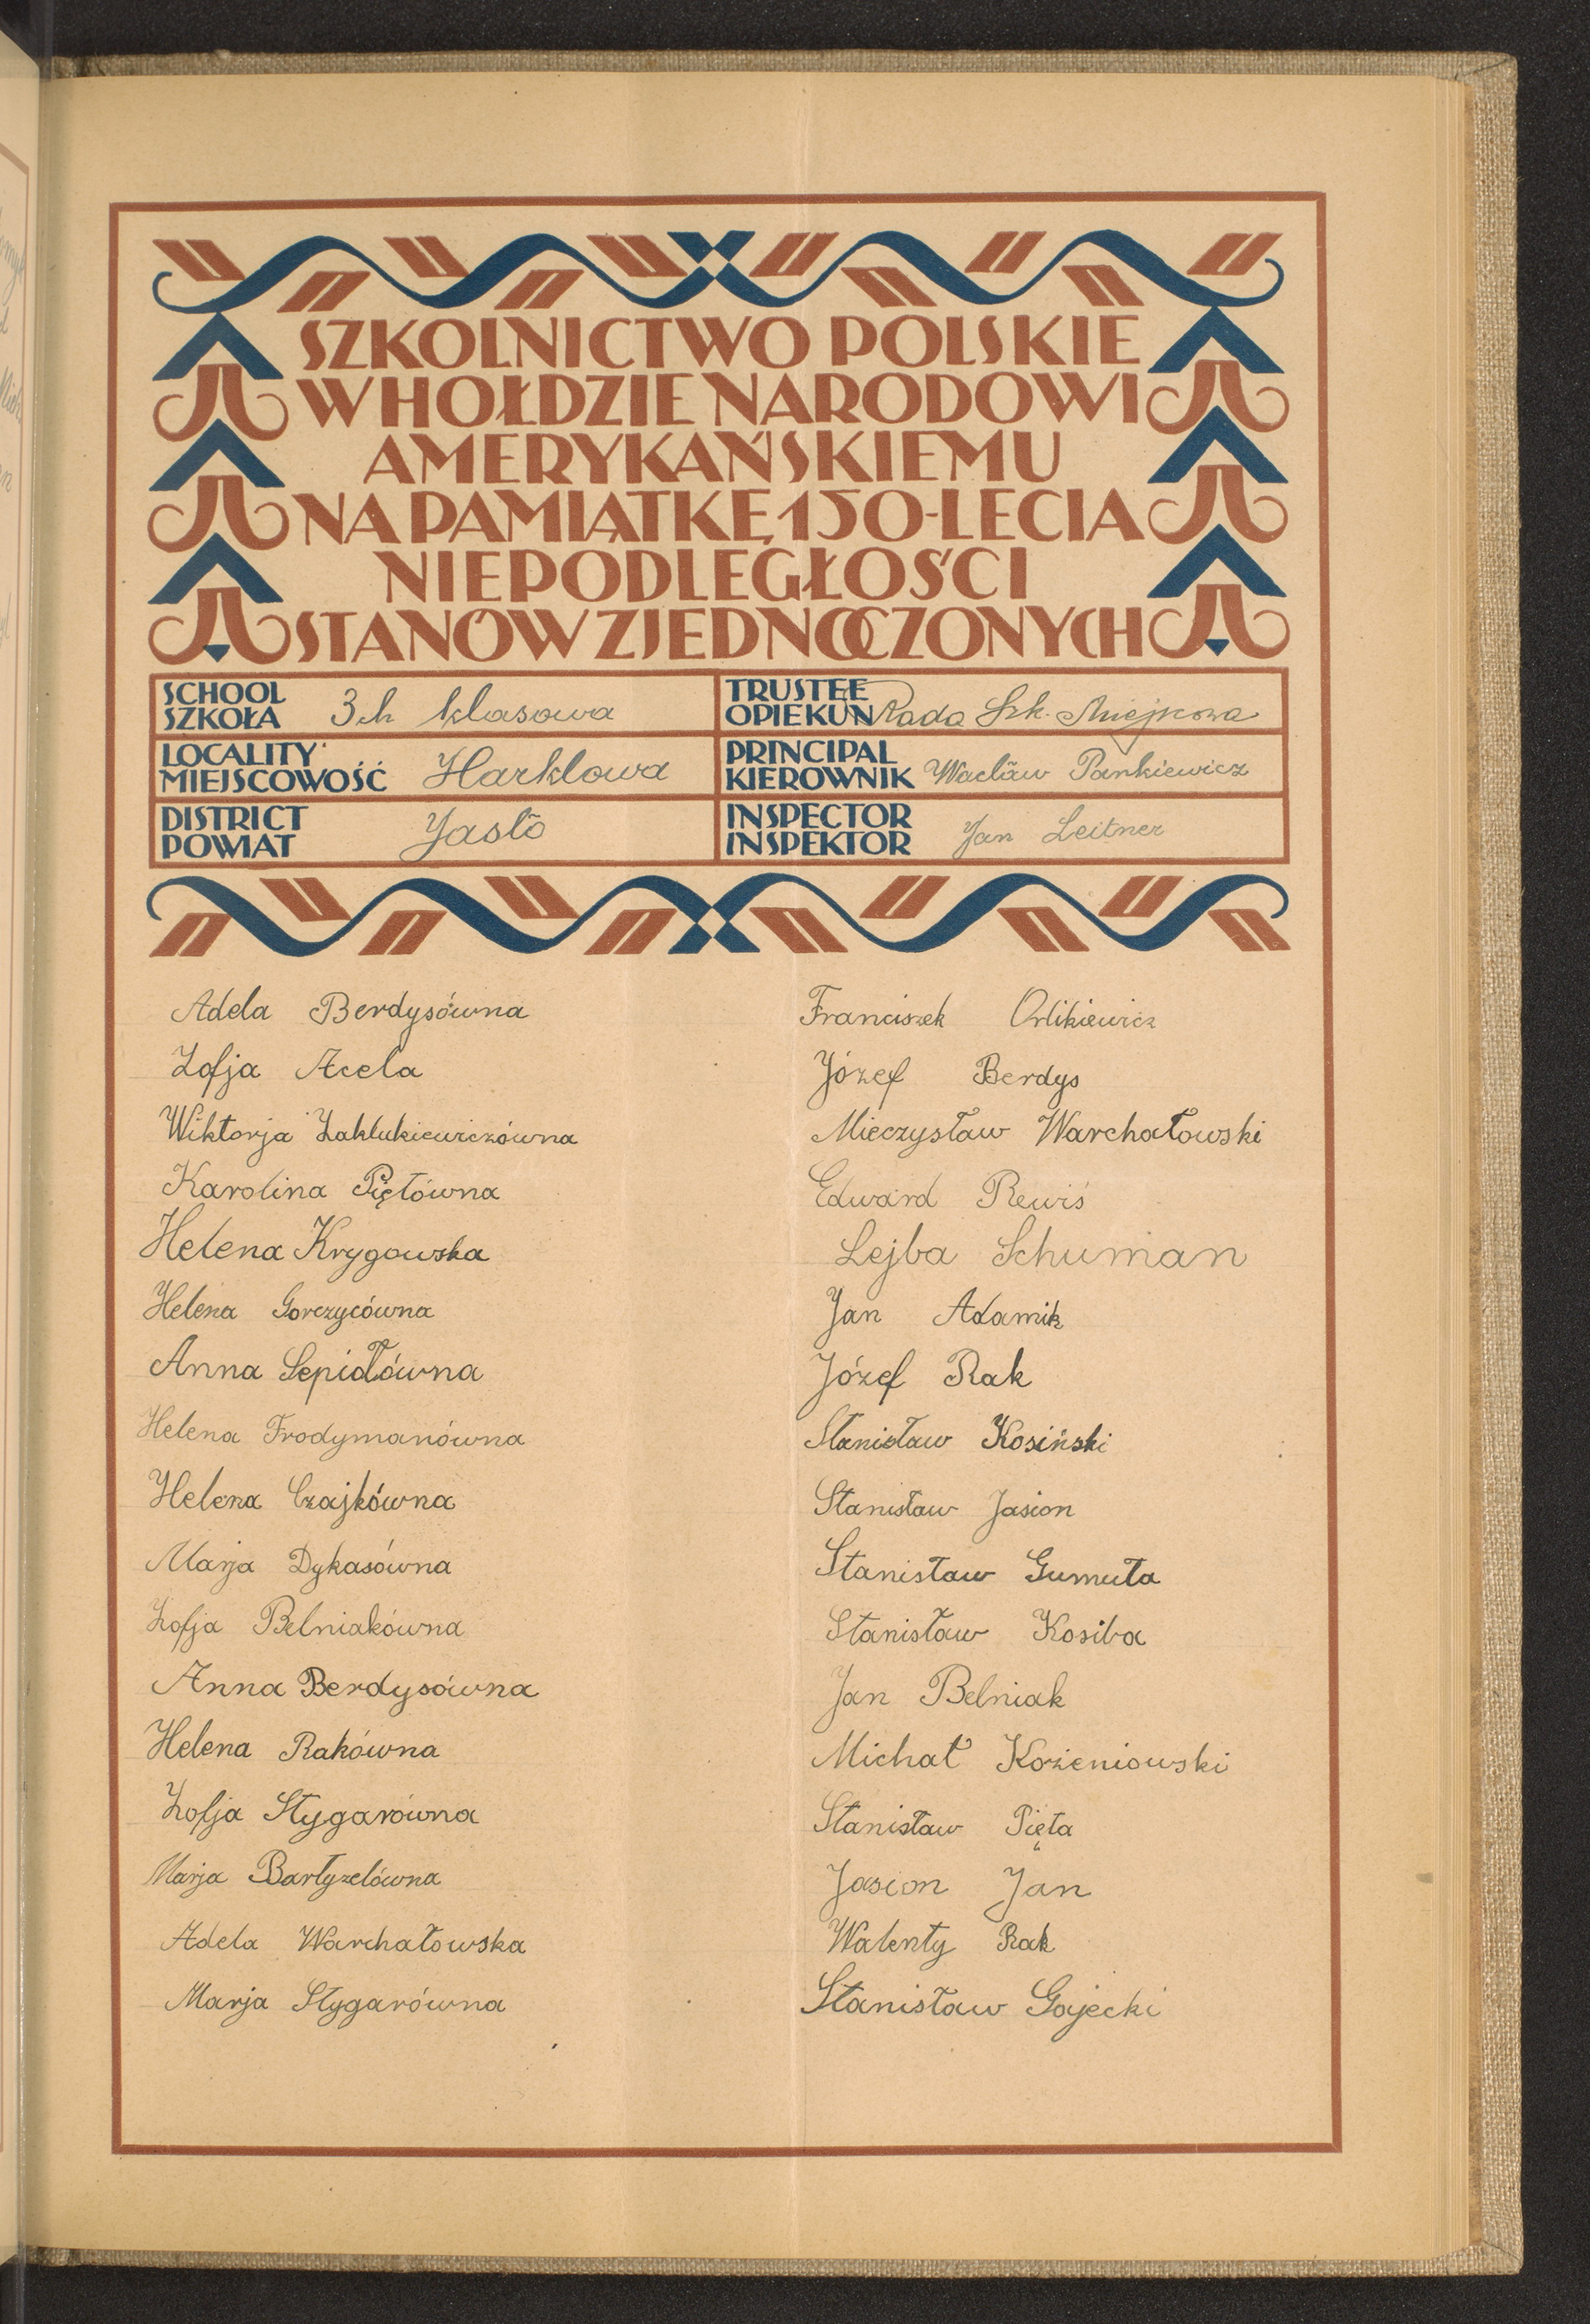 SZKOLNICTWO POLSKIE
W HOŁDZIE NARODOWI
AMERYKAŃSKIEMU
NA PAMIĄTKĘ 150-LECIA
NIEPODLEGŁOŚCI
STANÓW ZJEDNOCZONYCH
SCHOOL
SZKOŁA 3ch klasowa
TRUSTEE
OPIEKUN Rada Szk. Miejscowa
LOCALITY
MIEJSCOWOŚĆ Harklowa
PRINCIPAL
KIEROWNIK Wacław Pankiewicz
DISTRICT
POWIAT Jasło
INSPECTOR
INSPEKTOR Jan Leitner
Adela Berdysówna
Zofja Acela
Wiktorja Zaklukiewiczówna
Karolina Piętówna
Helena Krygowska
Helena Gorczycówna
Anna Sepiołówna
Helena Frodymanówna
Helena Czajkówna
Marja Dykasówna
Zofja Belniakówna
Anna Berdysówna
Helena Rakówna
Zofja Stygarówna
Marja Bartyzelówna
Adela Warchałowska
Marja Stygarówna
Franciszek Orlikiewicz
Józef Berdys
Mieczysław Warchałowski
Edward Rewiś
Lejba Schuman
Jan Adamik
Józef Rak
Stanisław Kosiński
Stanisław Jasion
Stanisław Gumuła
Stanisław Kosiba
Jan Belniak
Michał Kożeniowski
Stanisław Pięta
Jasion Jan
Walenty Rak
Stanisław Gajecki